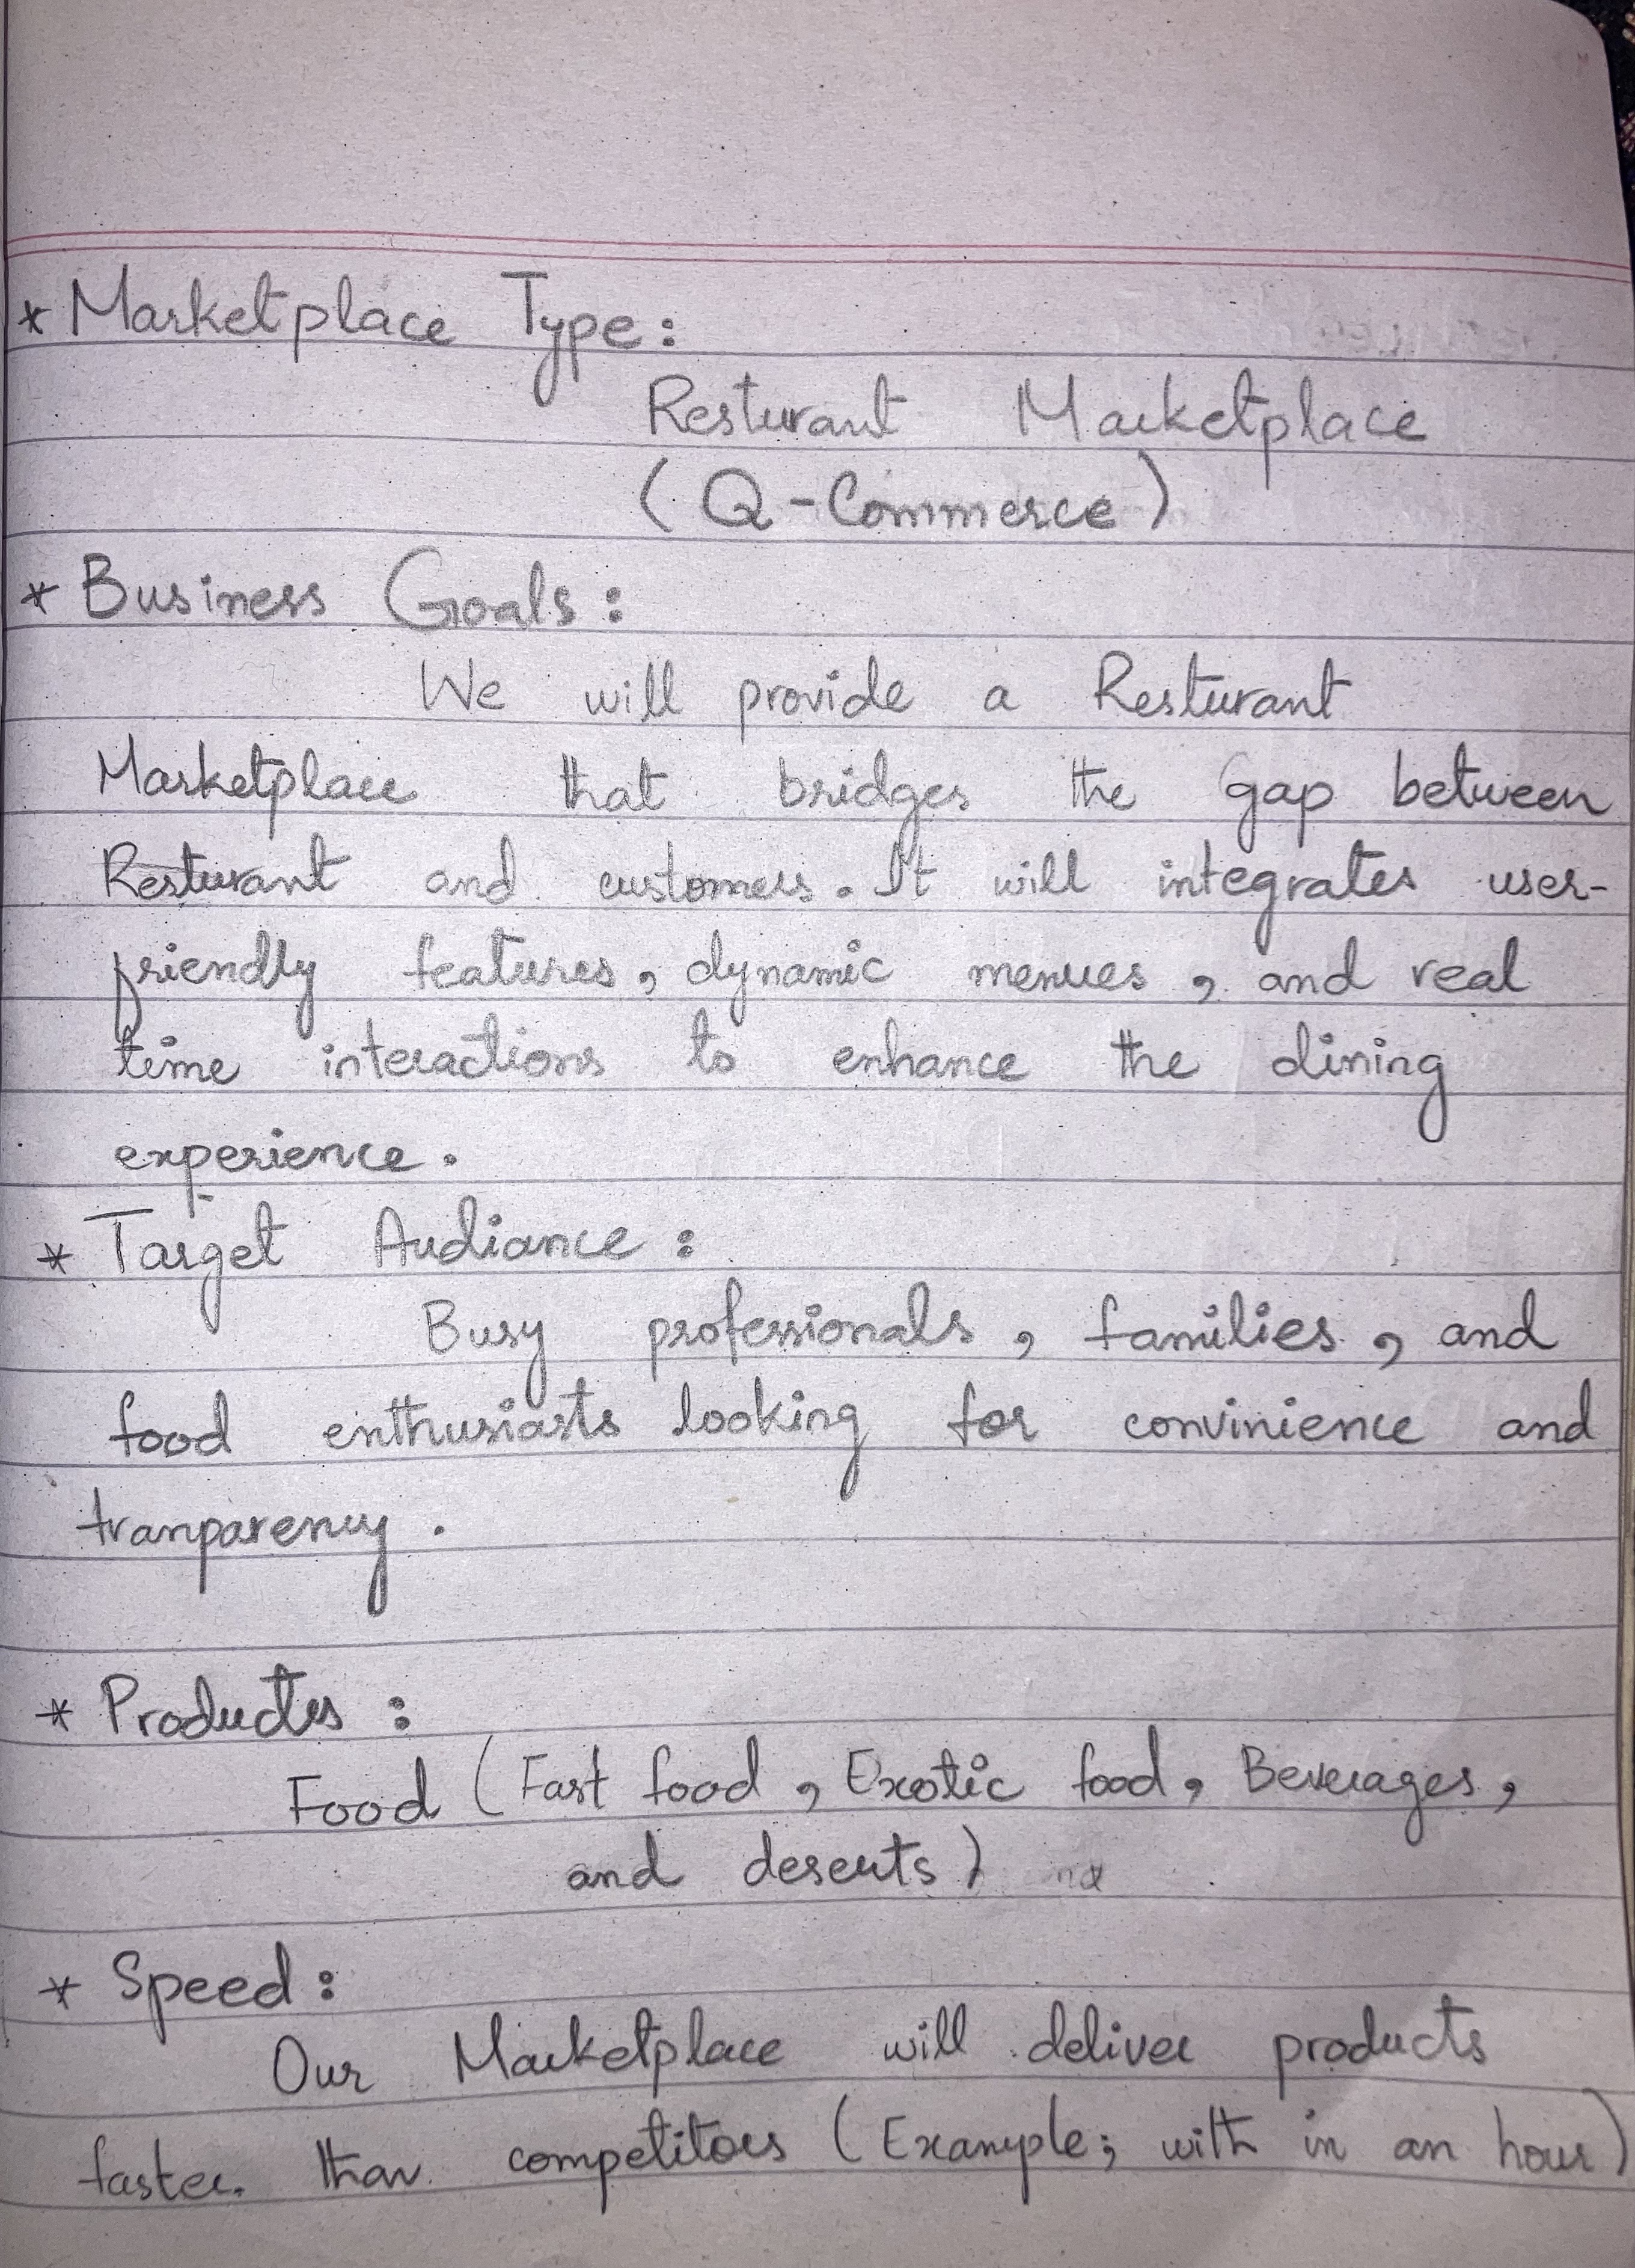 * Marketplace Type:
Resturant Marketplace
(Q-Commerce)
* Business Goals:
We will provide a Resturant
Marketplace that bridges the Gap between
Resturant and customers. It will integrates user-
friendly features, dynamic menues, and real
time interactions to enhance the dining
experience.
* Target Audiance:
Busy professionals, families, and
food enthusiasts looking for convinience and
tranparency.
* Products:
Food (Fast food, Exotic food, Beverages,
and deserts)
* Speed:
Our Marketplace will deliver products
faster. than competitors (Example; with in an hour)